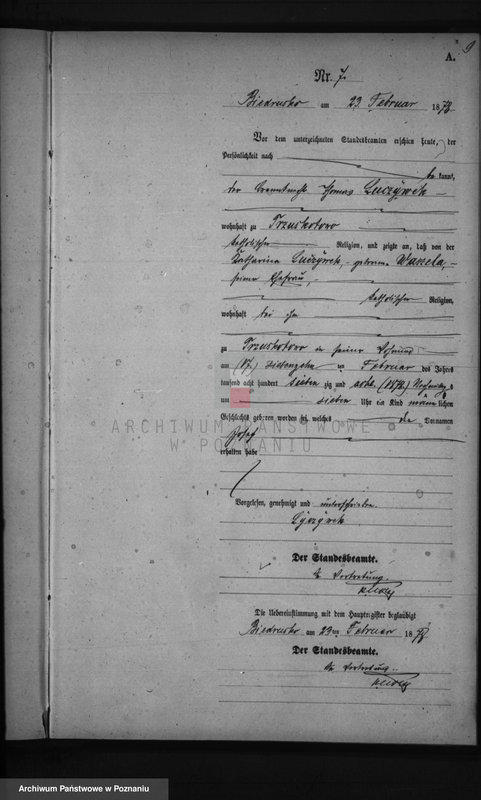 A. 9
Nr. 7.
Biedrusko am 23 Februar 1878
Vor dem unterzeichneten Standesbeamten erschien heute, der
Persönlichkeit nach
bekannt,
der Thomas Luczywek
wohnhaft zu Trzuskotowo
katholischer Religion, und zeigte an, daß von der
Katharina Luczywek, geborene Waszela,
seiner Ehefrau,
katholischer Religion,
wohnhaft bei ihm
zu Trzuskotowo in seiner Wohnung
am (17.) siebenzehn ten Februar des Jahres
tausend acht hundert sieben zig und acht (1878) Nachmittags
um sieben Uhr ein Kind männlichen
Geschlechts geboren worden sei, welches die Vornamen
Josef
erhalten habe
Vorgelesen, genehmigt und unterschrieben.
Der Standesbeamte.
In Vertretung.
Die Uebereinstimmung mit dem Hauptregister beglaubigt
Biedrusko am 23ten Februar 1878
Der Standesbeamte.
In Vertretung.
ARCHIWUM PAŃSTWOWE
W POZNANIU
Archiwum Państwowe w Poznaniu